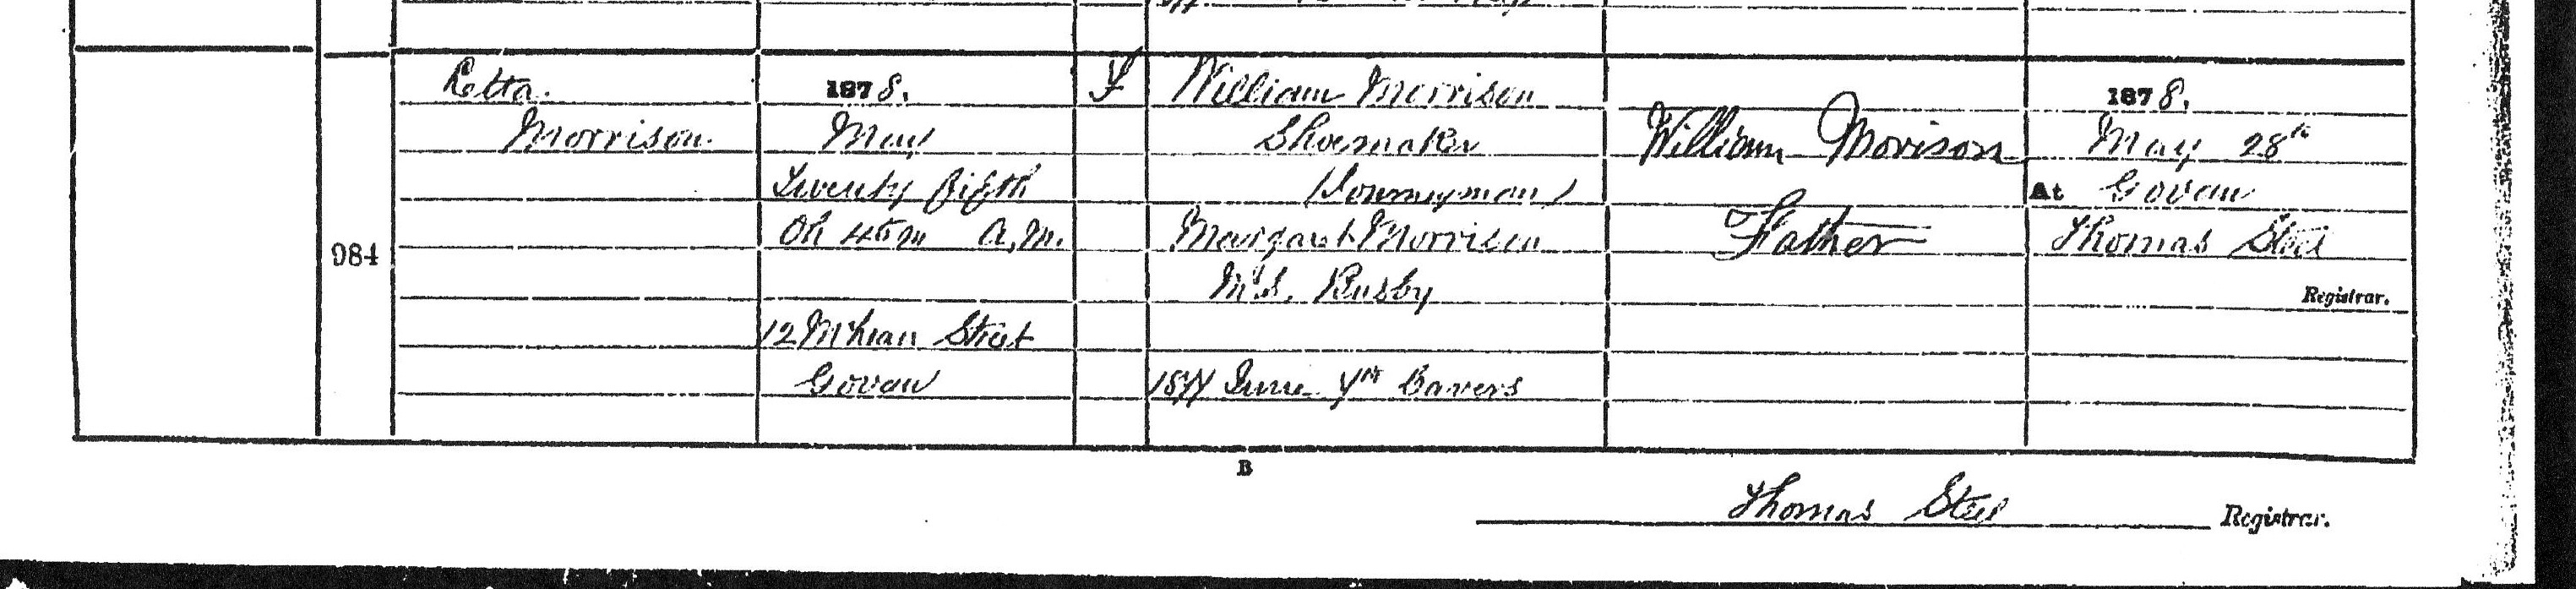 Letta
Morrison
984
1878.
May
Twenty fifth
0h 45m A.M.
12 McLean Street
Govan
F
William Morrison
Shoemaker
(Journeyman)
Margaret Morrison
M.S. Busby
1877 June 7th Cavers
William Morison
Father
1878.
May 28th
At Govan
Thomas Steel
Registrar.
B
Thomas Steel Registrar.